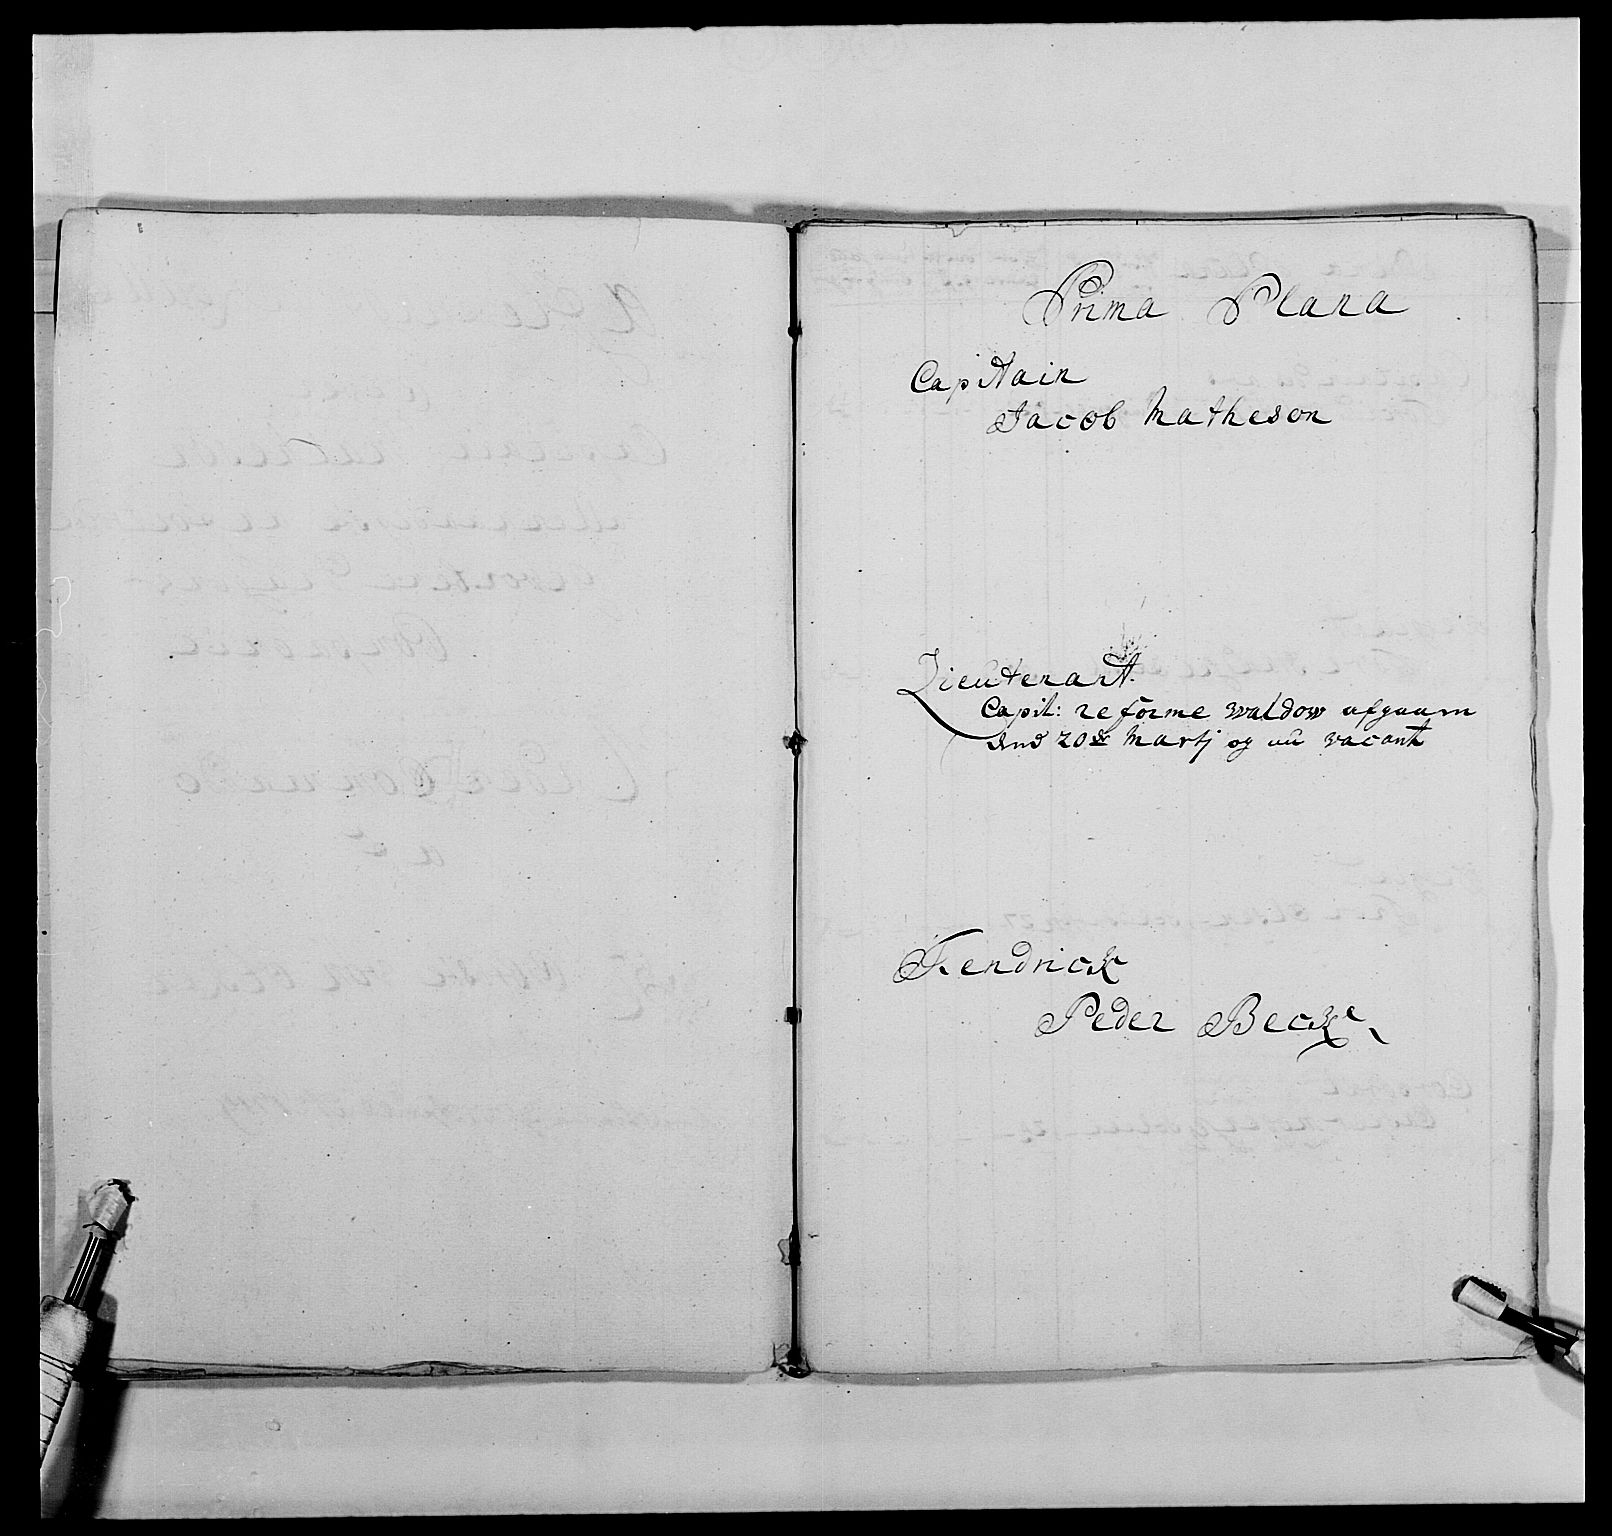 Prima Plana
Capitain
Jacob Matheson
Lieutenant
Capit: reforme Waldow afgaaen
dend 20de Martj og nu vacant
Fendrick
Peder Becke